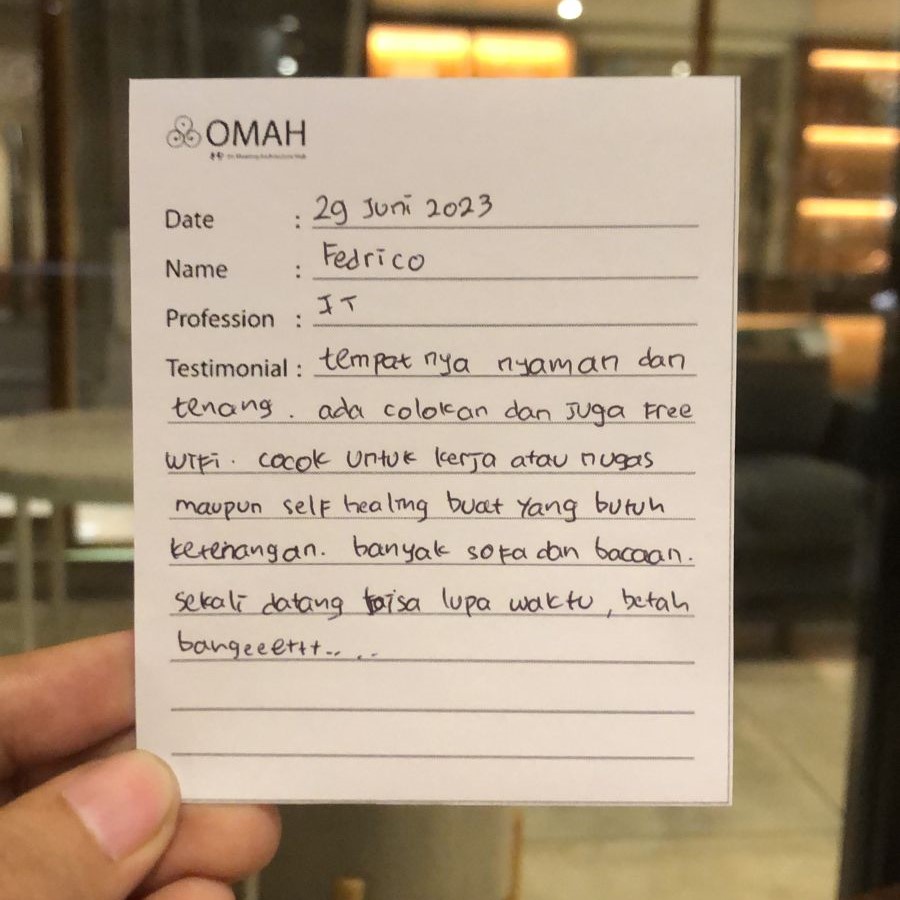 OMAH
Date : 29 Juni 2023
Name : Fedrico
Profession : IT
Testimonial : tempat nya nyaman dan
tenang. ada colokan dan juga Free
WIFI. cocok untuk kerja atau nugas
maupun self healing buat yang butuh
ketenangan. banyak sofa dan bacaan.
sekali datang bisa lupa waktu, betah
bangeeettt.. ..